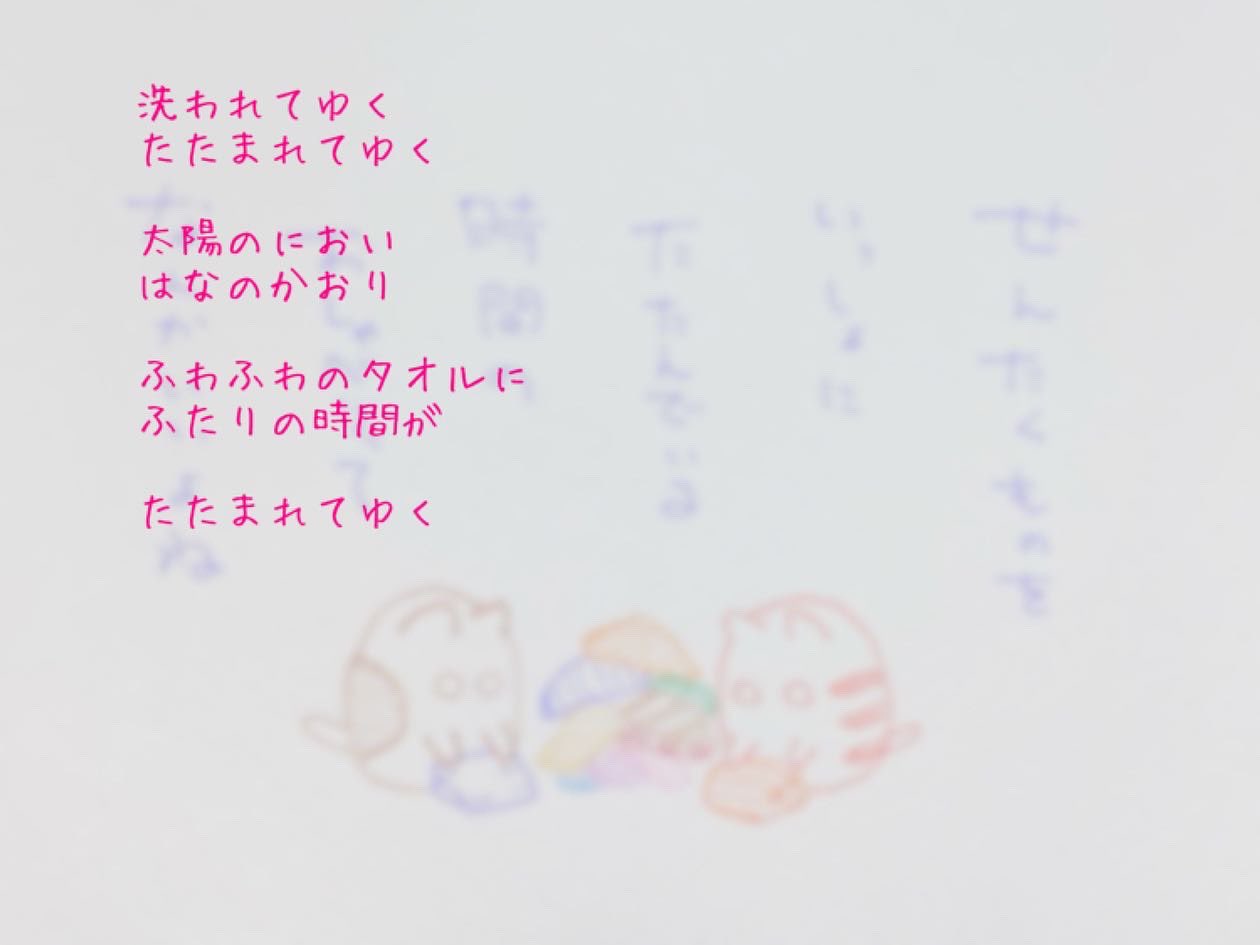 洗われてゆく
たたまれてゆく
太陽のにおい
はなのかおり
ふわふわのタオルに
ふたりの時間が
たたまれてゆく
せんたくものを
いっしょに
たたんでいる
時間